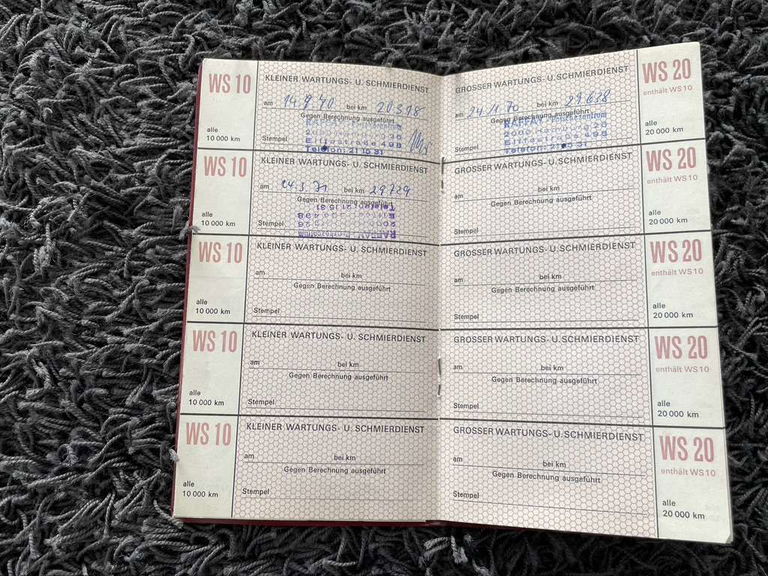 WS 10
alle
10 000 km
KLEINER WARTUNGS- U. SCHMIERDIENST
am 14.9.70 bei km 20398
Gegen Berechnung ausgeführt
Stempel
Eiffestraße 498
Telefon: 21 10 31
WS 10
alle
10 000 km
KLEINER WARTUNGS- U. SCHMIERDIENST
am 24.3.71 bei km 29729
Gegen Berechnung ausgeführt
Stempel
WS 10
alle
10 000 km
KLEINER WARTUNGS- U. SCHMIERDIENST
am bei km
Gegen Berechnung ausgeführt
Stempel
WS 10
alle
10 000 km
KLEINER WARTUNGS- U. SCHMIERDIENST
am bei km
Gegen Berechnung ausgeführt
Stempel
WS 10
alle
10 000 km
KLEINER WARTUNGS- U. SCHMIERDIENST
am bei km
Gegen Berechnung ausgeführt
Stempel
GROSSER WARTUNGS- U. SCHMIERDIENST
am 24.11.70 bei km 29638
Gegen Berechnung ausgeführt
Stempel
Eiffestraße 498
WS 20
enthält WS 10
alle
20 000 km
GROSSER WARTUNGS- U. SCHMIERDIENST
am bei km
Gegen Berechnung ausgeführt
Stempel
WS 20
enthält WS 10
alle
20 000 km
GROSSER WARTUNGS- U. SCHMIERDIENST
am bei km
Gegen Berechnung ausgeführt
Stempel
WS 20
enthält WS 10
alle
20 000 km
GROSSER WARTUNGS- U. SCHMIERDIENST
am bei km
Gegen Berechnung ausgeführt
Stempel
WS 20
enthält WS 10
alle
20 000 km
GROSSER WARTUNGS- U. SCHMIERDIENST
am bei km
Gegen Berechnung ausgeführt
Stempel
WS 20
enthält WS 10
alle
20 000 km